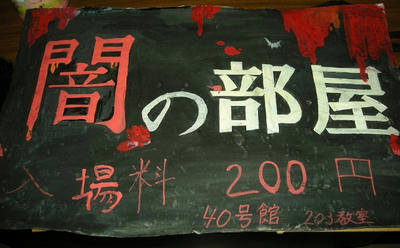 闇の部屋
入場料 200円
40号館 203教室